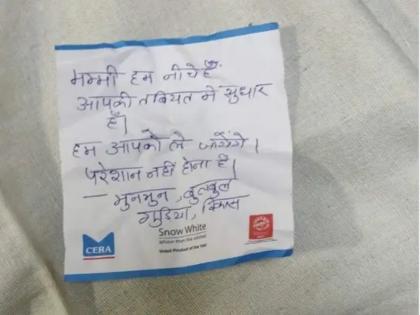 मम्मी हम नीचे है
आपकी तबियत मे सुधार
है।
हम आपको ले जायेंगे।
परेशान नहीं होना है।
— मुनमुन, बुलबुल
गुडिया, विकास
CERA
Snow White
Whiter than the whitest
Voted Product of the Year